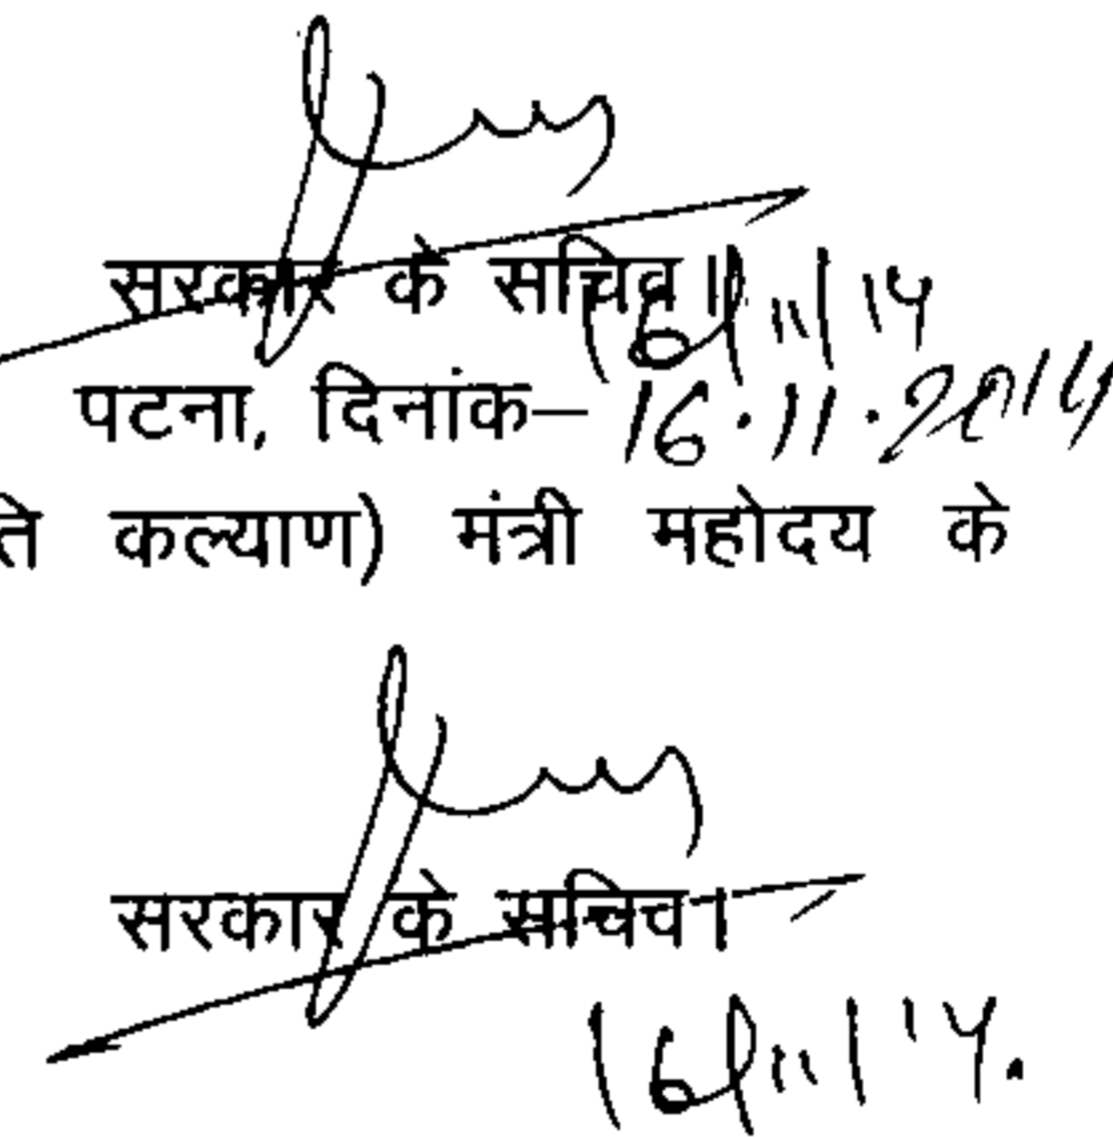 सरकार के सचिव।
16/11/14
पटना, दिनांक– 16.11.2014
ति कल्याण) मंत्री महोदय के
सरकार के सचिव।
16/11/14.